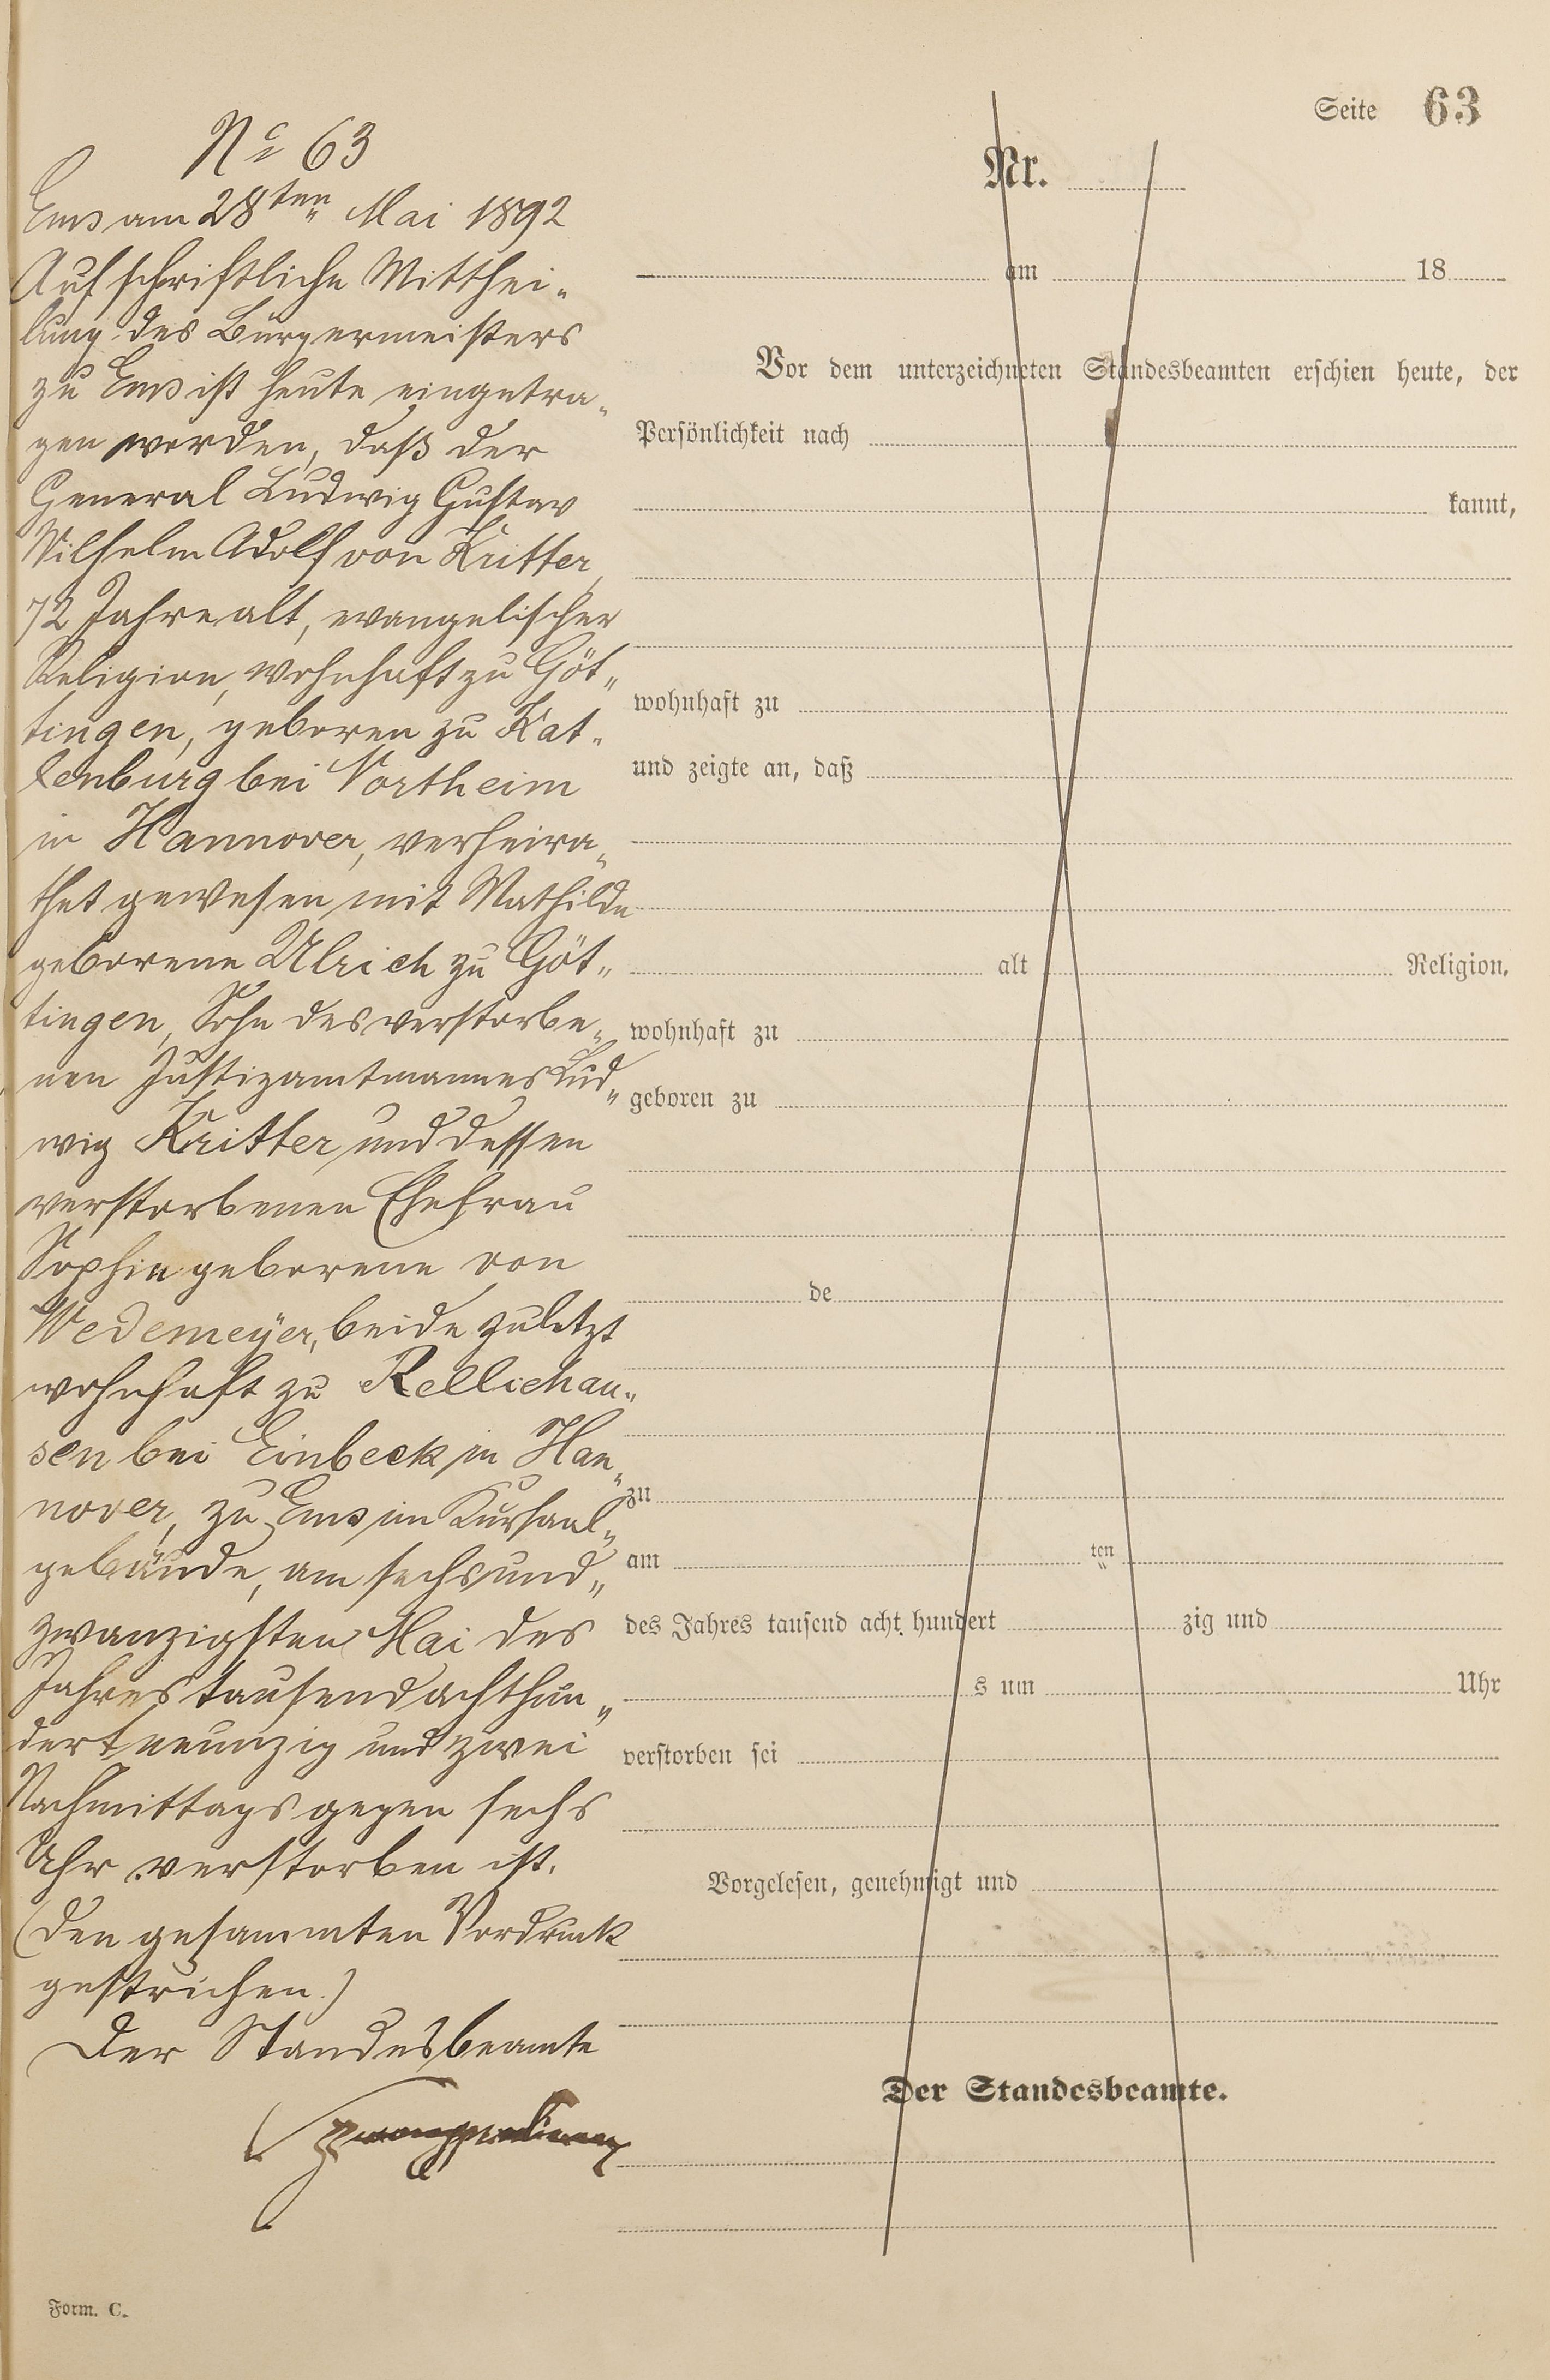 Seite 63
No 63
Ems am 28ten Mai 1892
Auf schriftliche Mitthei-
lung des Bürgermeisters
zu Ems ist heute eingetra-
gen worden, daß der
General Ludwig Gustav
Wilhelm Adolf von Kritter,
72 Jahre alt, evangelischer
Religion, wohnhaft zu Göt-
tingen, geboren zu Kat-
lenburg bei Northeim
in Hannover, verheira-
thet gewesen mit Mathilde
geborene Ulrich zu Göt-
tingen, Sohn des verstorbe-
nen Justizamtmannes Lud-
wig Kritter und dessen
verstorbenen Ehefrau
Sophie geborene von
Wedemeyer, beide zuletzt
wohnhaft zu Relliehau-
sen bei Einbeck in Han-
nover, zu Ems im Kursaal-
gebäude, am sechsund-
zwanzigsten Mai des
Jahres tausend achthun-
dert neunzig und zwei
Nachmittags gegen sechs
Uhr verstorben ist.
(Den gesammten Vordruck
gestrichen.)
Der Standesbeamte
Nr.
am 18
Vor dem unterzeichneten Standesbeamten erschien heute, der
Persönlichkeit nach
kannt,
wohnhaft zu
und zeigte an, daß
alt Religion,
wohnhaft zu
geboren zu
de
zu
am ten
des Jahres tausend acht hundert zig und
s um Uhr
verstorben sei
Vorgelesen, genehmigt und
Der Standesbeamte.
Form. C.